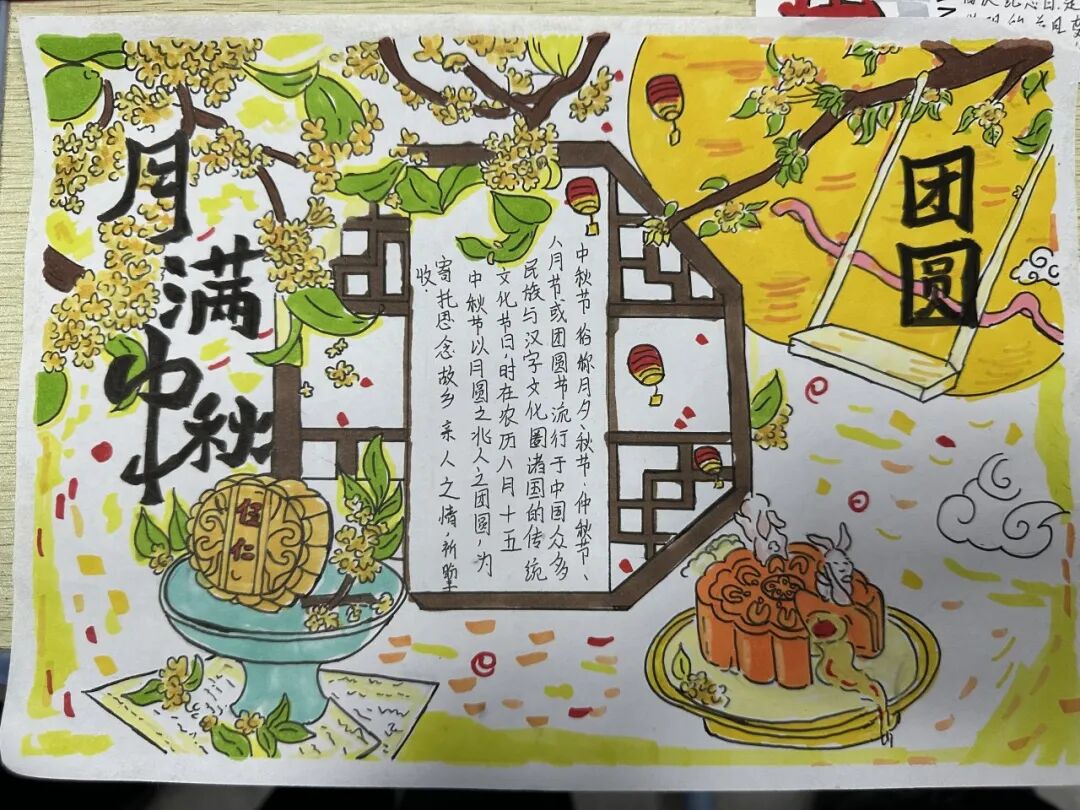 月满
中秋
团圆
中秋节 俗称月夕、秋节、仲秋节、
八月节或团圆节流行于中国众多
民族与汉字文化圈诸国的传统
文化节日,时在农历八月十五
中秋节以月圆之兆人之团圆,为
寄托思念故乡 亲人之情,祈
收
伍仁